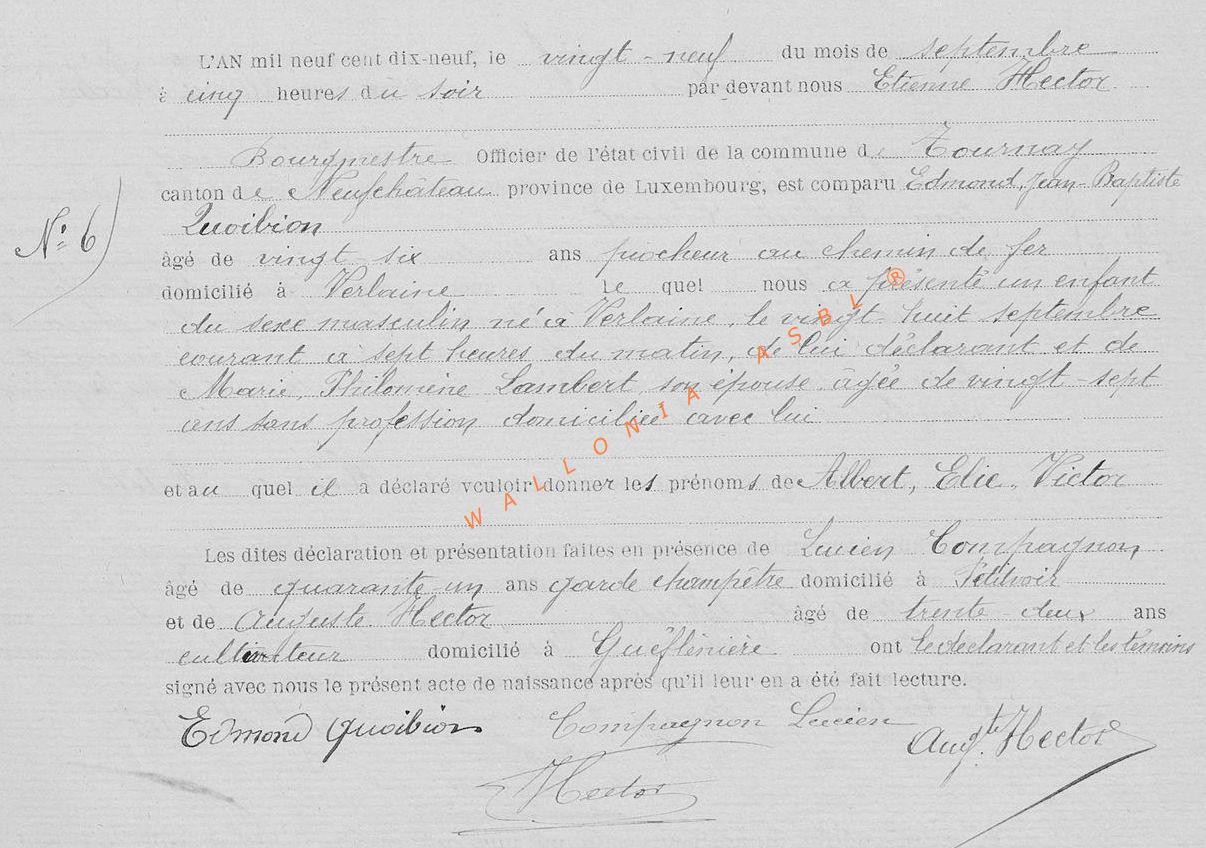 L'AN mil neuf cent dix-neuf, le vingt-neuf du mois de septembre
à cinq heures du soir par devant nous Etienne Hector
Bourgmestre Officier de l'état civil de la commune de Tournay
canton de Neufchâteau province de Luxembourg, est comparu Edmond, Jean-Baptiste
Quoibion
Nº 6
âgé de vingt six ans piocheur au chemin de fer
domicilié à Verlaine Le quel nous a présenté un enfant
du sexe masculin né à Verlaine, le vingt-huit septembre
courant à sept heures du matin, de lui déclarant et de
Marie, Philomène Lambert son épouse âgée de vingt-sept
ans sans profession domiciliée avec lui
et au quel il a déclaré vouloir donner les prénoms de Albert, Elie, Victor
Les dites déclaration et présentation faites en présence de Lucien Compagnon
âgé de quarante-un ans garde champêtre domicilié à Petitvoir
et de Auguste Hector âgé de trente-deux ans
cultivateur domicilié à ont le déclarant et les témoins
signé avec nous le présent acte de naissance après qu'il leur en a été fait lecture.
Edmond Quoibion Compagnon Lucien Augte Hector
Hector
WALLONIA ASBL ®